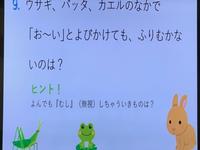 9. ウサギ、バッタ、カエルのなかで
「お～い」とよびかけても、ふりむかな
いのは？
ヒント！
よんでも『むし』（無視）しちゃういきものは？